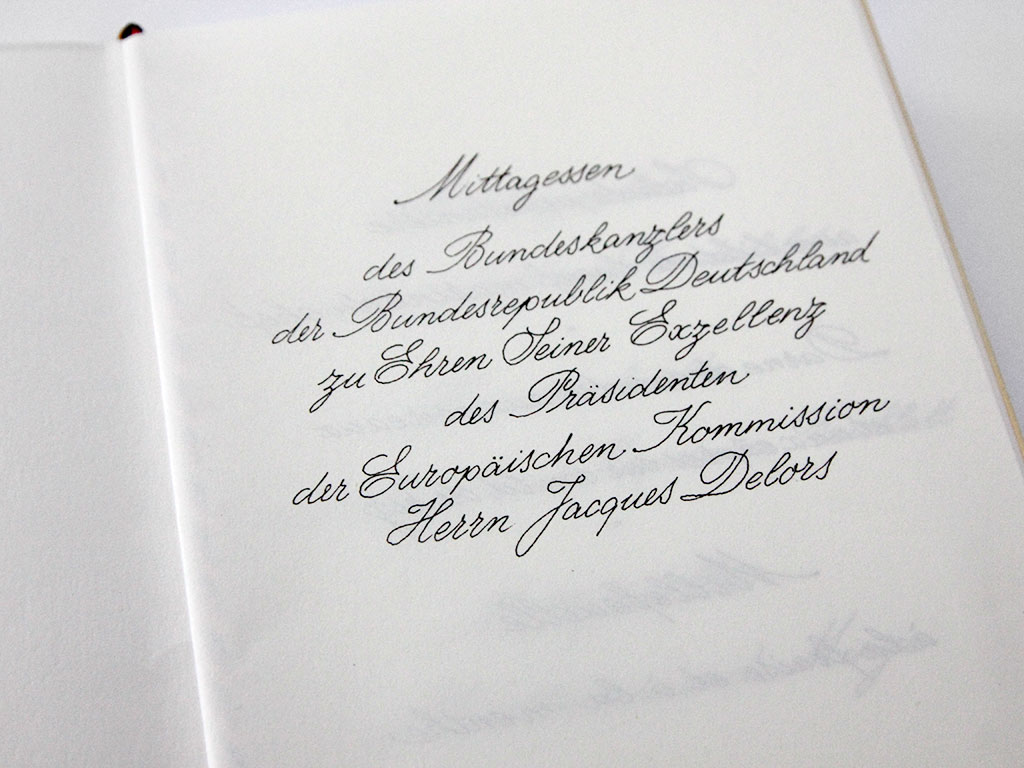 Mittagessen
des Bundeskanzlers
der Bundesrepublik Deutschland
zu Ehren Seiner Exzellenz
des Präsidenten
der Europäischen Kommission
Herrn Jacques Delors